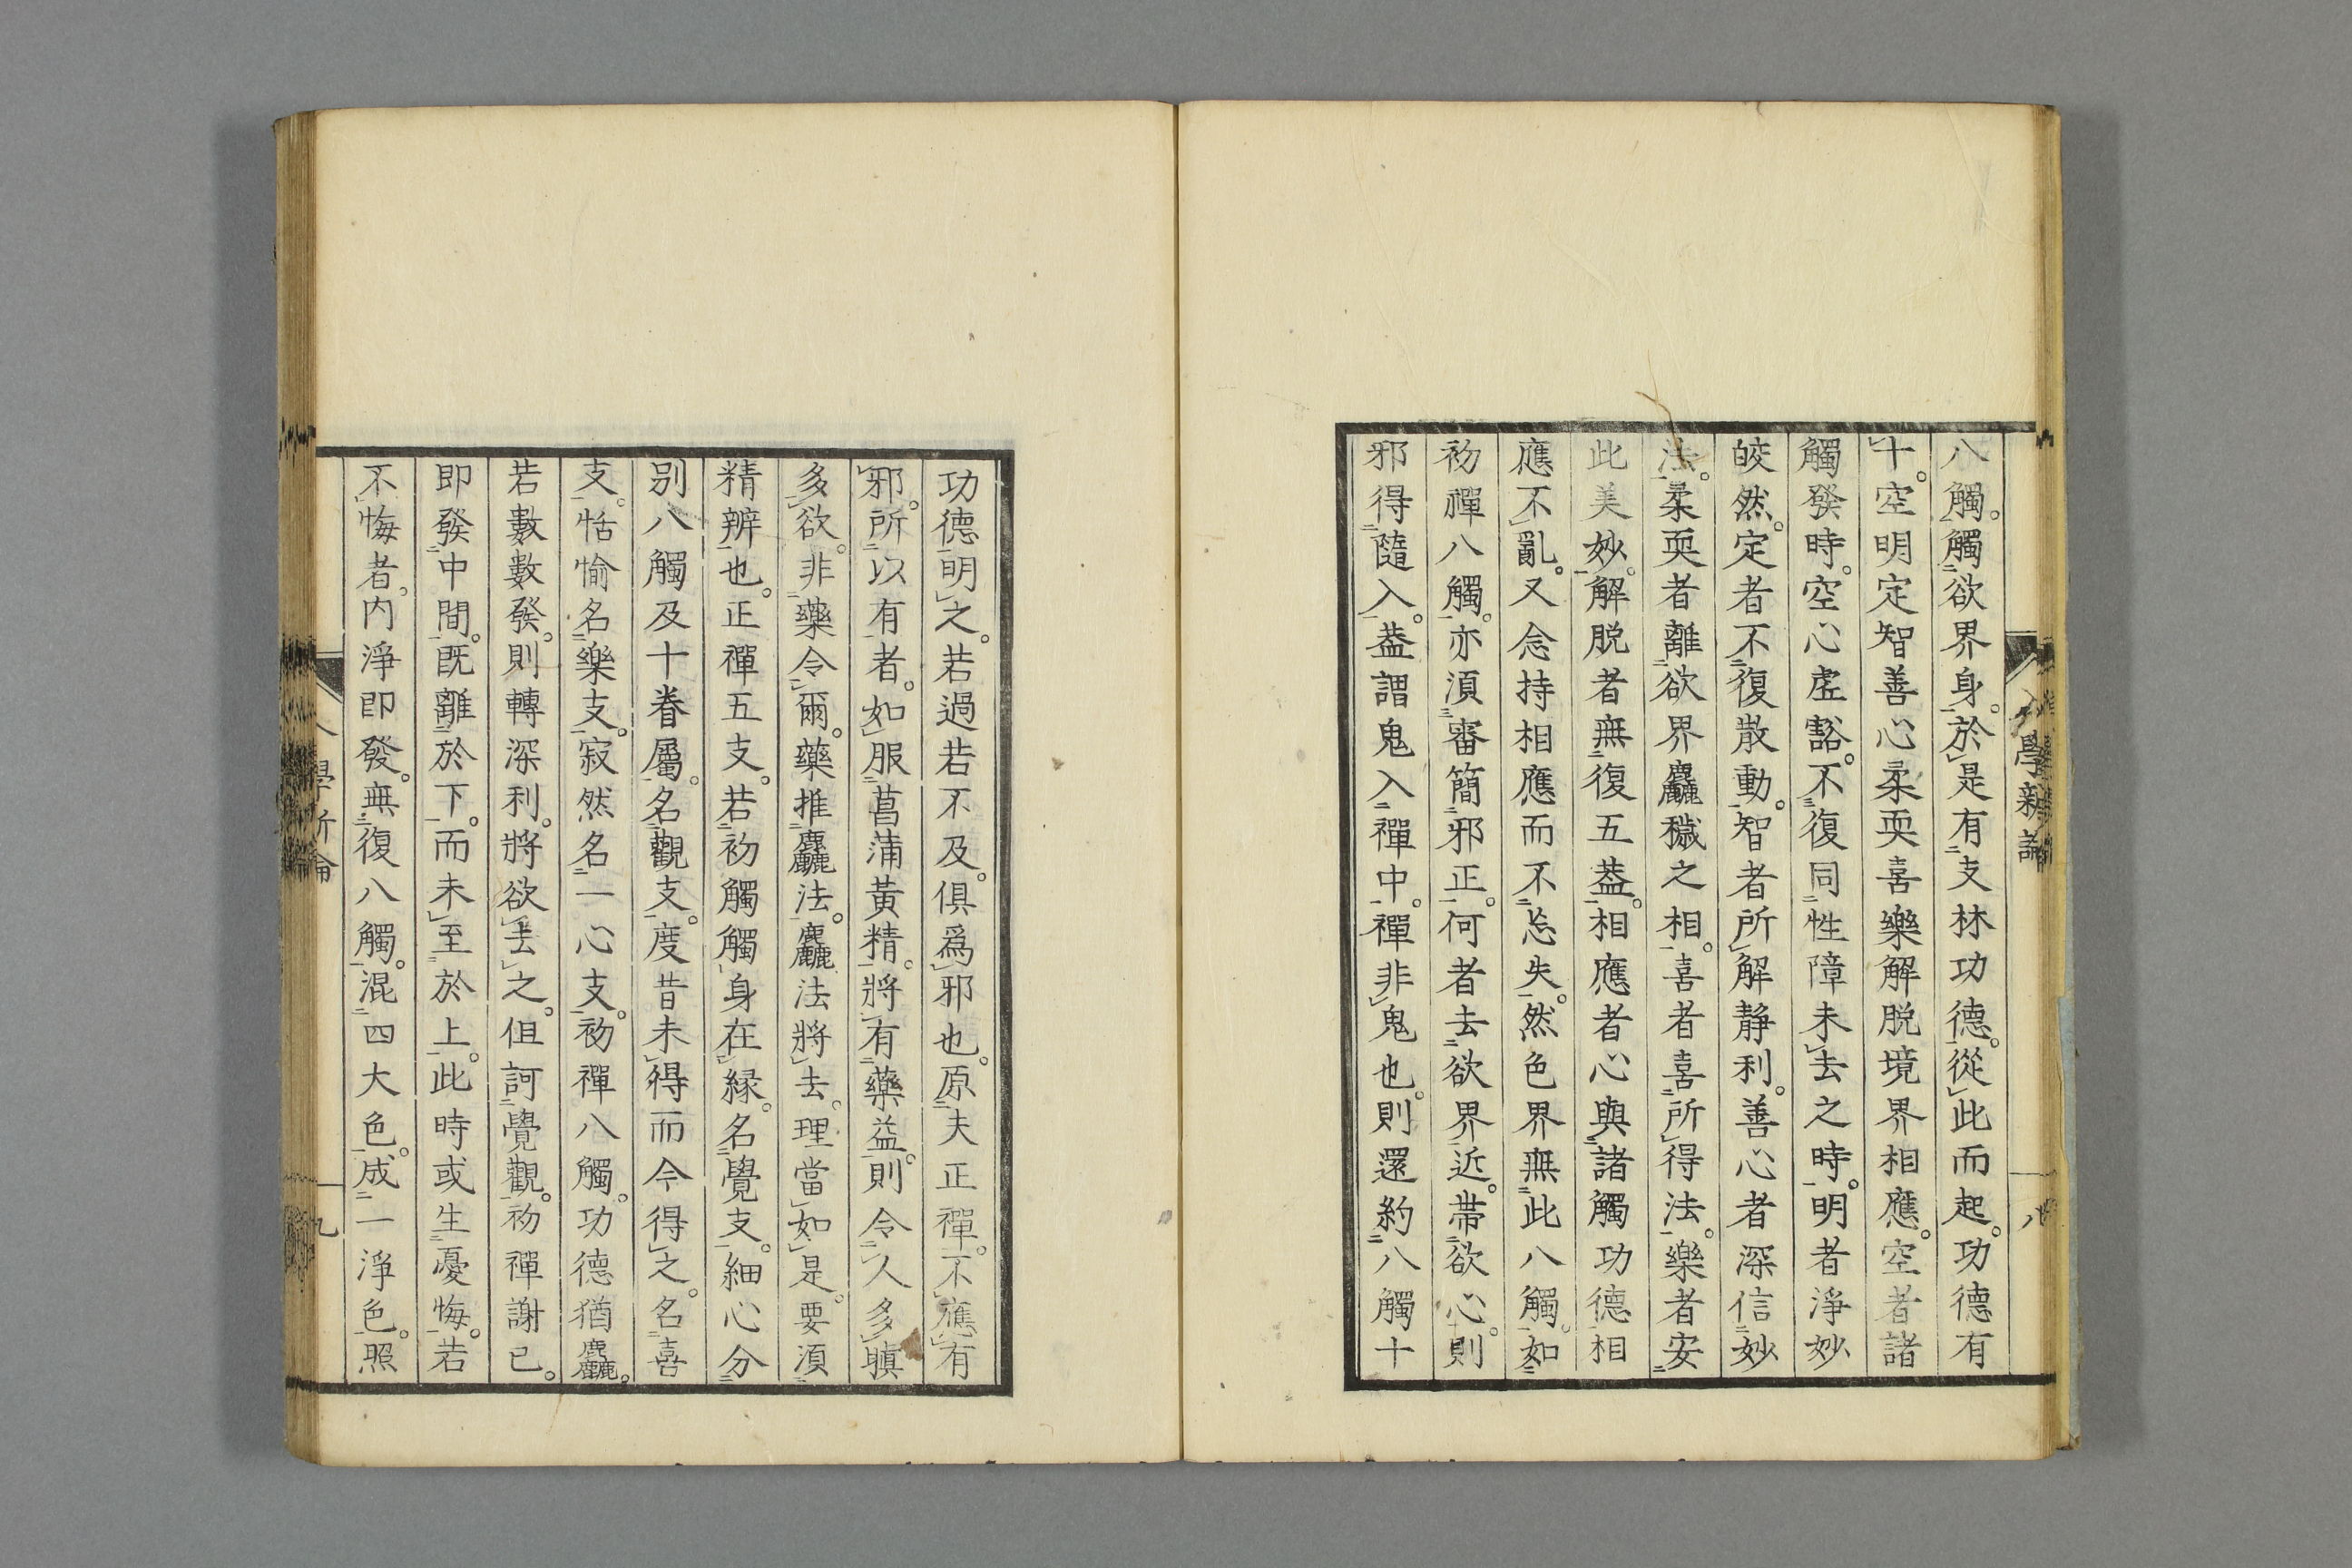 八觸。觸欲界身。於是有支林功德。從此而起。功德有
十。空明定智善心柔耎喜樂解脫境界相應。空者諸
觸發時。空心虛豁。不復同性障未去之時。明者淨妙
皎然。定者不復散動。智者所解靜利。善心者深信妙
法。柔耎者離欲界麤穢之相。喜者喜所得法。樂者安
此美妙。解脫者無復五葢。相應者心與諸觸功德相
應不亂。又念持相應而不忘失。然色界無此八觸。如
初禪八觸。亦須審簡邪正。何者去欲界近。帶欲心。則
邪得隨入。葢謂鬼入禪中。禪非鬼也。則還約八觸十
功德明之。若過若不及。俱爲邪也。原夫正禪。不應有
邪。所以有者。如服菖蒲黃精。將有藥益。則令人多瞋
多欲。非藥令爾。藥推麤法。麤法將去。理當如是。要須
精辨也。正禪五支。若初觸觸身在緣。名覺支。細心分
別八觸及十眷屬。名觀支。度昔未得而今得之。名喜
支。恬愉名樂支。寂然名一心支。初禪八觸。功德猶麤。
若數數發。則轉深利。將欲去之。但訶覺觀。初禪謝已。
即發中間。既離於下。而未至於上。此時或生憂悔。若
不悔者。內淨即發。無復八觸。混四大色。成一淨色。照
學新論
八
九